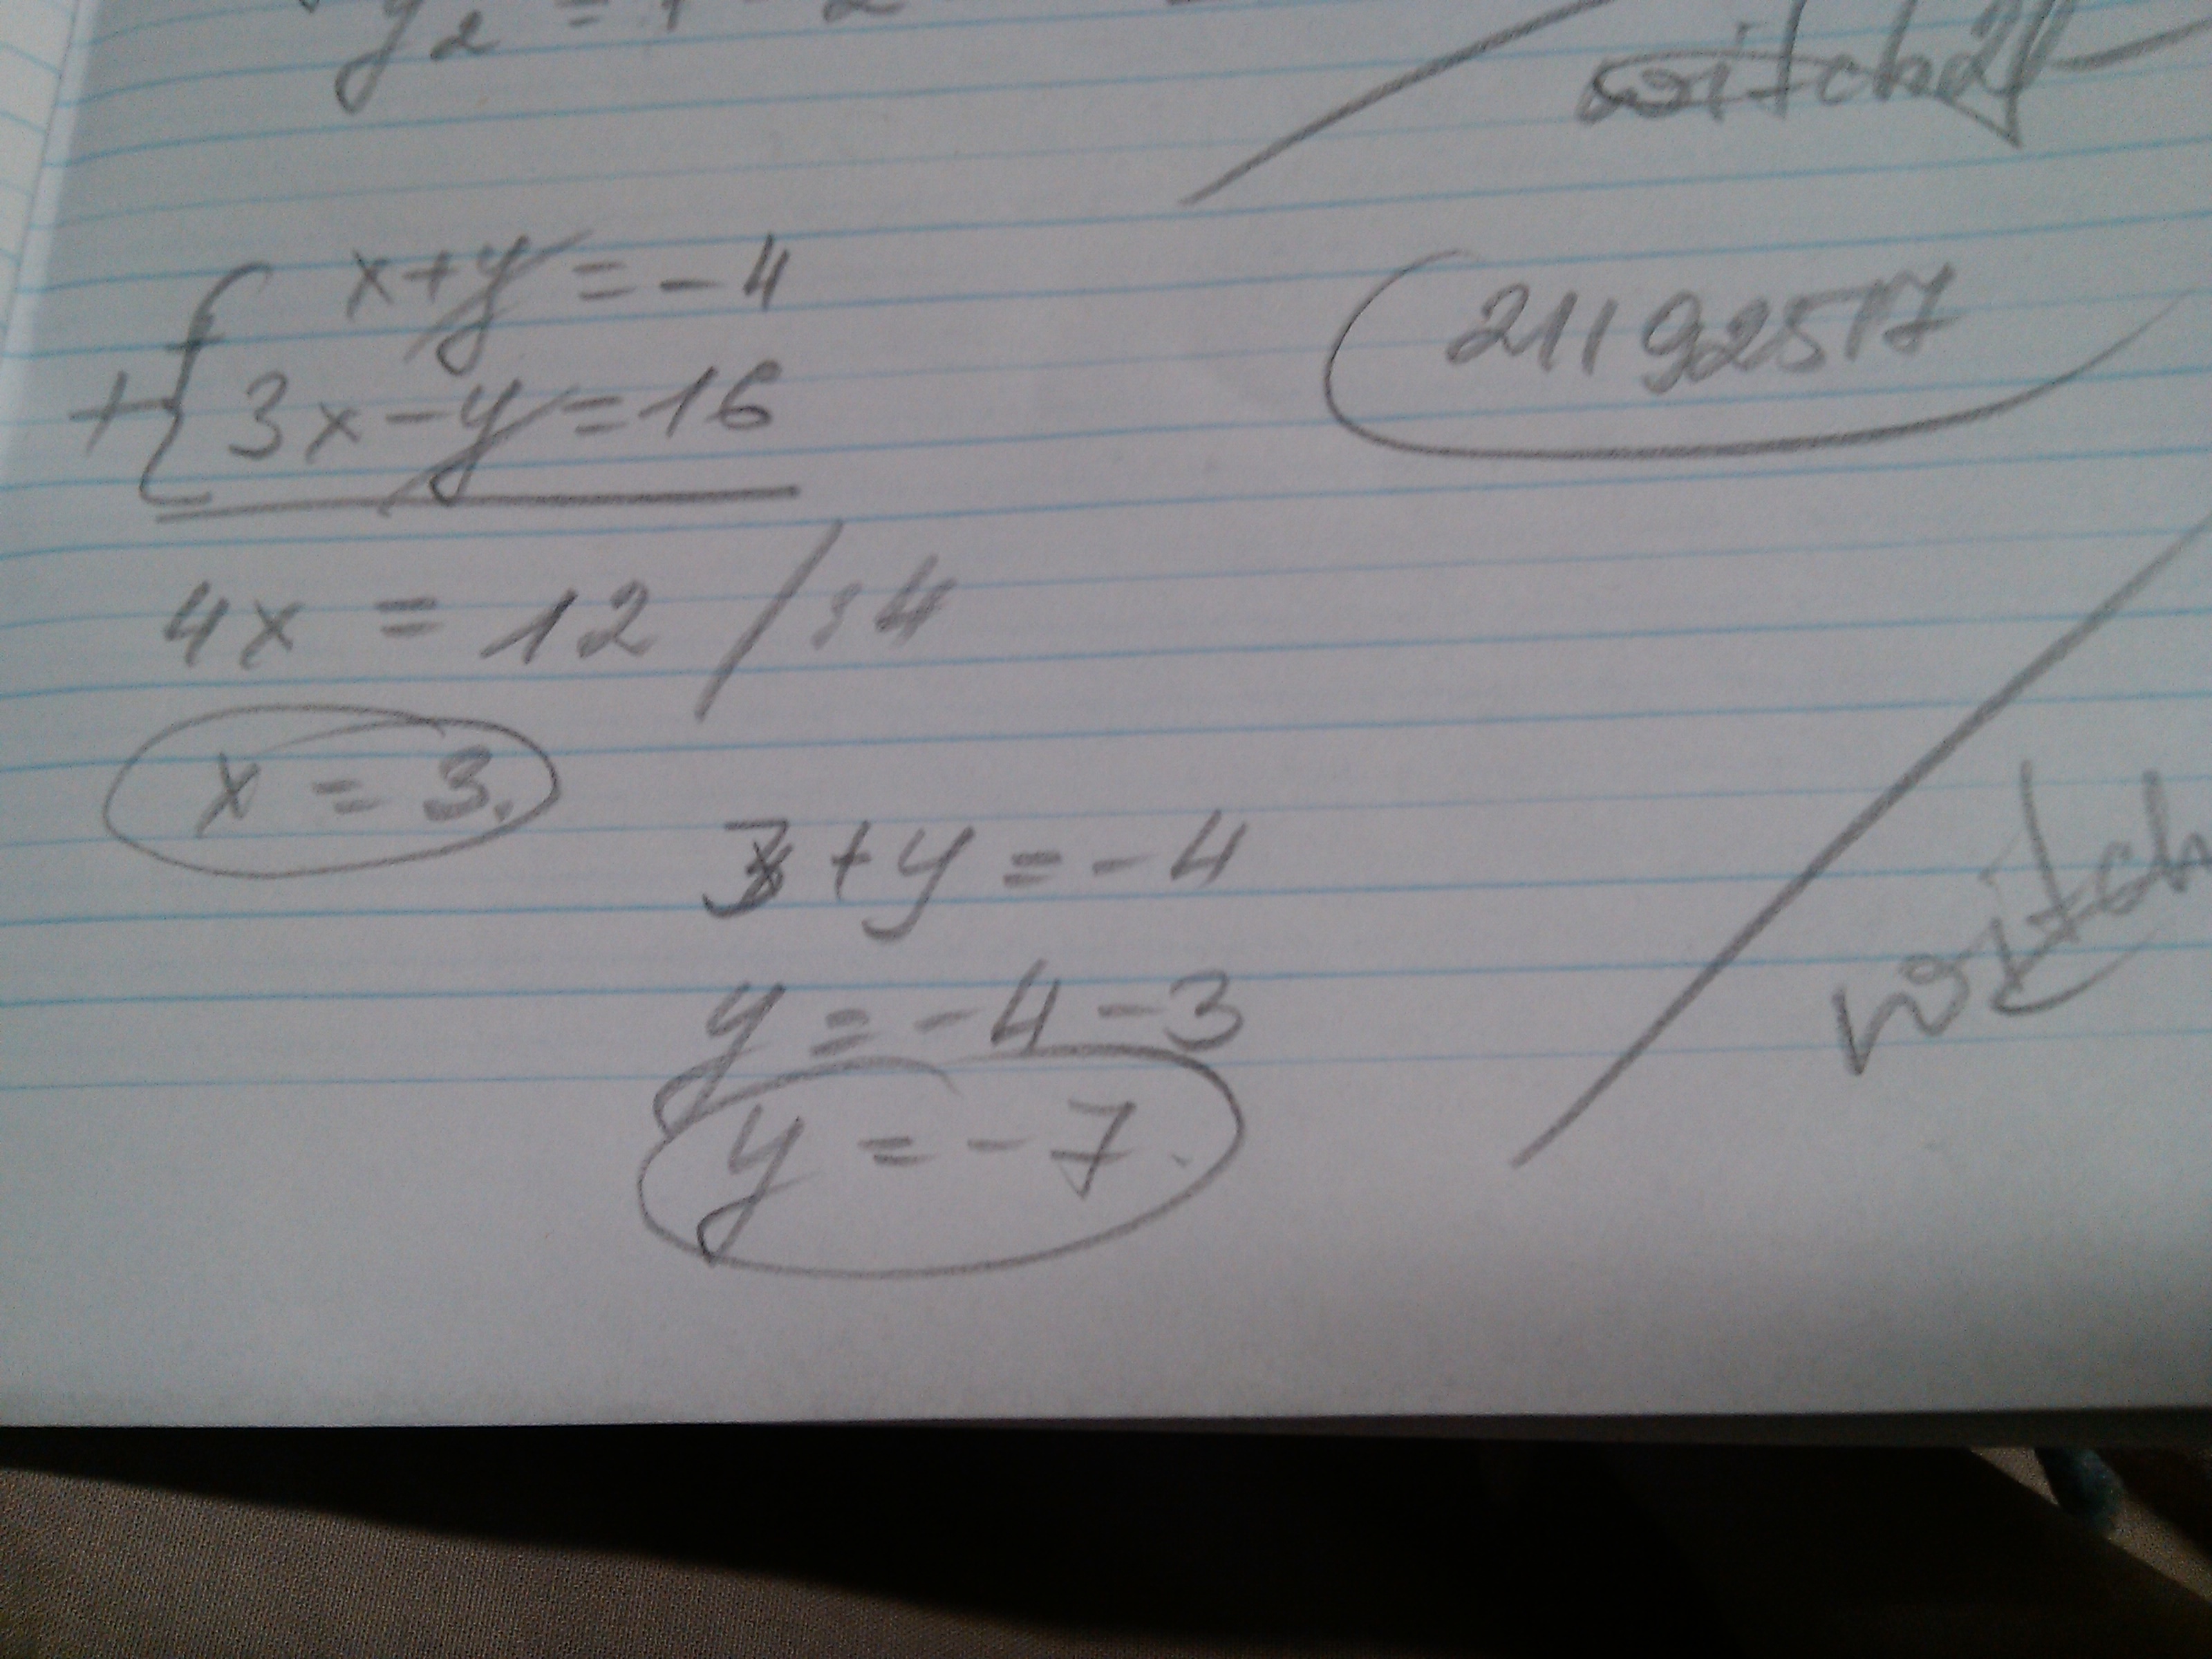 y₂ =
witch21
x+y = -4
3x-y = 16
21192517
4x = 12 / :4
x = 3.
3+y = -4
y = -4-3
y = -7.
witch